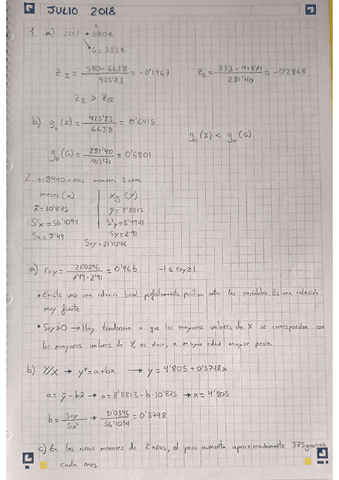 JULIO 2018
1. a) 2017 → 580€
G = 333€
Z_I = (580 - 663'8) / 425'83 = -0'1967    Z_G = (333 - 413'71) / 281'40 = -0'2868
Z_I > Z_G
b) g_0(I) = 425'83 / 663'8 = 0'6415
g_0(I) < g_0(G)
g_0(G) = 281'40 / 413'71 = 0'6801
2. n=8440 niños menores 2 años
meses (x) | kg (y)
x̄=10'875 | ȳ=8'8813
S²x=56'1094 | S²y=8'4941
Sx=7'49 | Sy=2'91
Sxy=21'0346
a) rxy = 21'0346 / (7'49·2'91) = 0'965    -1≤rxy≤1
• Existe una relación lineal perfectamente positiva entre las variables. Es una relación
muy fuerte.
• Sxy>0 → Hay tendencia a que los mayores valores de X se correspondan con
los mayores valores de Y, es decir, a mayor edad mayor peso.
b) Y/X → y*=a+bx → y = 4'805 + 0'3748x
a = ȳ - b·x̄ → a = 8'8813 - b·10'875 → a = 4'805
b = Sxy / Sx² → 21'0346 / 56'1094 = 0'3748
c) En los niños menores de 2 años, el peso aumenta aproximadamente 375 gramos
cada mes.